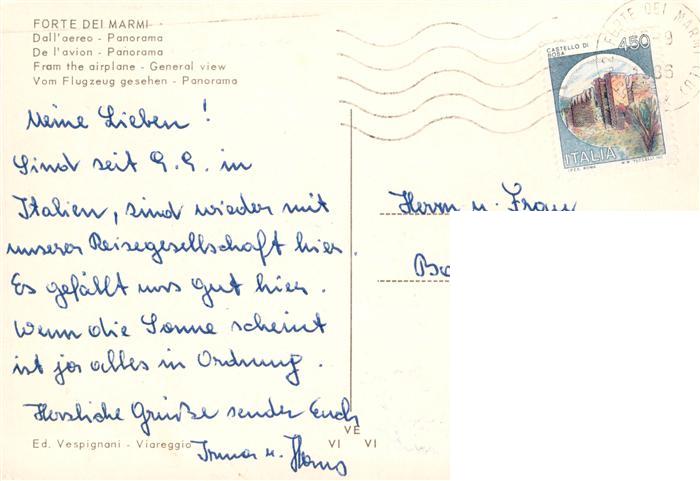 FORTE DEI MARMI
Dall'aereo - Panorama
De l'avion - Panorama
From the airplane - General view
Vom Flugzeug gesehen - Panorama
Meine Lieben!
Sind seit 9.9. in
Italien, sind wieder mit
unserer Reisegesellschaft hier.
Es gefällt uns gut hier.
Wenn die Sonne scheint
ist ja alles in Ordnung.
Herzliche Grüße sendet Euch
Irma u. Hans
Ed. Vespignani - Viareggio
VE
VI VI
FORTE DEI MARMI
CASTELLO DI
ROSA
450
ITALIA
I.P.Z.S. ROMA
Herrn u. Frau